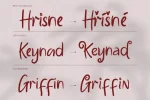 Hrisne → Hříšné
Keynad → Keynad
Griffin → Griffin